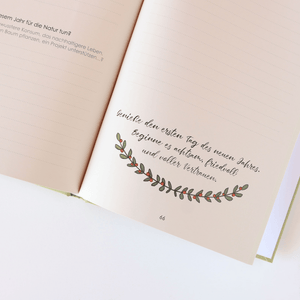 esem Jahr für die Natur tun?
bewusster Konsum, das nachhaltigem Leben
n Baum pflanzen, ein Projekt unterstützen...)
Genieße den ersten Tag des neuen Jahres.
Beginne es achtsam, friedvoll
und voller Vertrauen.
66